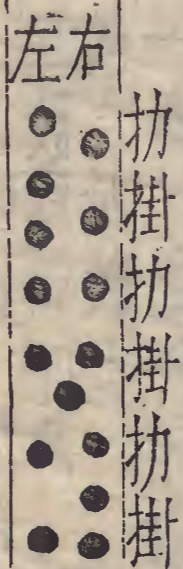 扐掛扐掛扐掛
右
左